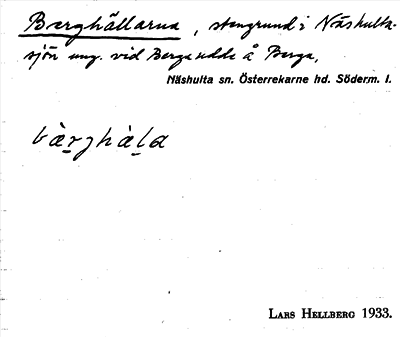 Berghällarna, stengrund i Näshulta-
sjön ung. vid Berga udde å Berga,
Näshulta sn. Österrekarne hd. Söderm. l.
bàrghàla
Lars Hellberg 1933.